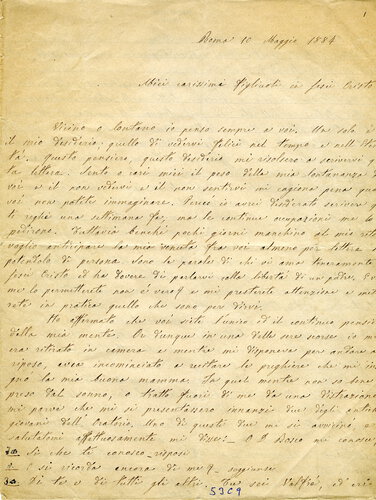 1
Roma 10 Maggio 1884
Miei carissimi figliuoli in Gesù Cristo
Vicino o lontano io penso sempre a voi. Un solo è
il mio desiderio, quello di vedervi felici nel tempo e nell'
tà. Questo pensiero, questo desiderio mi risolsero a scrivervi que
ta lettera. Sento o cari miei il peso della mia lontananza da
voi e il non vedervi e il non sentirvi mi cagiona pena quale
voi non potete immaginare. Perciò io avrei desiderato scrivere
te righe una settimana fa, ma le continue occupazioni me lo
pedirono. Tuttavia benchè pochi giorni manchino al mio
voglio anticipare la mia venuta fra voi almeno per lettera
potendolo di persona. Sono le parole di chi vi ama teneramente
Gesù Cristo ed ha dovere di parlarvi colla libertà di un padre.
me lo permetterete non è vero? e mi presterete attenzione e
rete in pratica quello che sono per dirvi.
Ho affermato che voi siete l'unico ed il continuo pensiero
della mia mente. Or dunque in una delle sere scorse io mi
era ritirato in camera e mentre mi disponeva per andare a
riposo, avea incominciato a recitare le preghiere che mi
gnò la mia buona mamma. In quel mentre non so bene
preso dal sonno, o tratto fuori di me da una distrazione
mi parve che mi si presentassero innanzi due degli antichi
giovani dell'Oratorio. Uno di questi due mi si avvicinò, e
salutatomi affettuosamente mi disse: O D Bosco mi conosce?
Sì che ti conosco - risposi
E si ricorda ancora di me? soggiunse
Di te e di tutti gli altri. Tu sei Valfrè, ed eri
5309